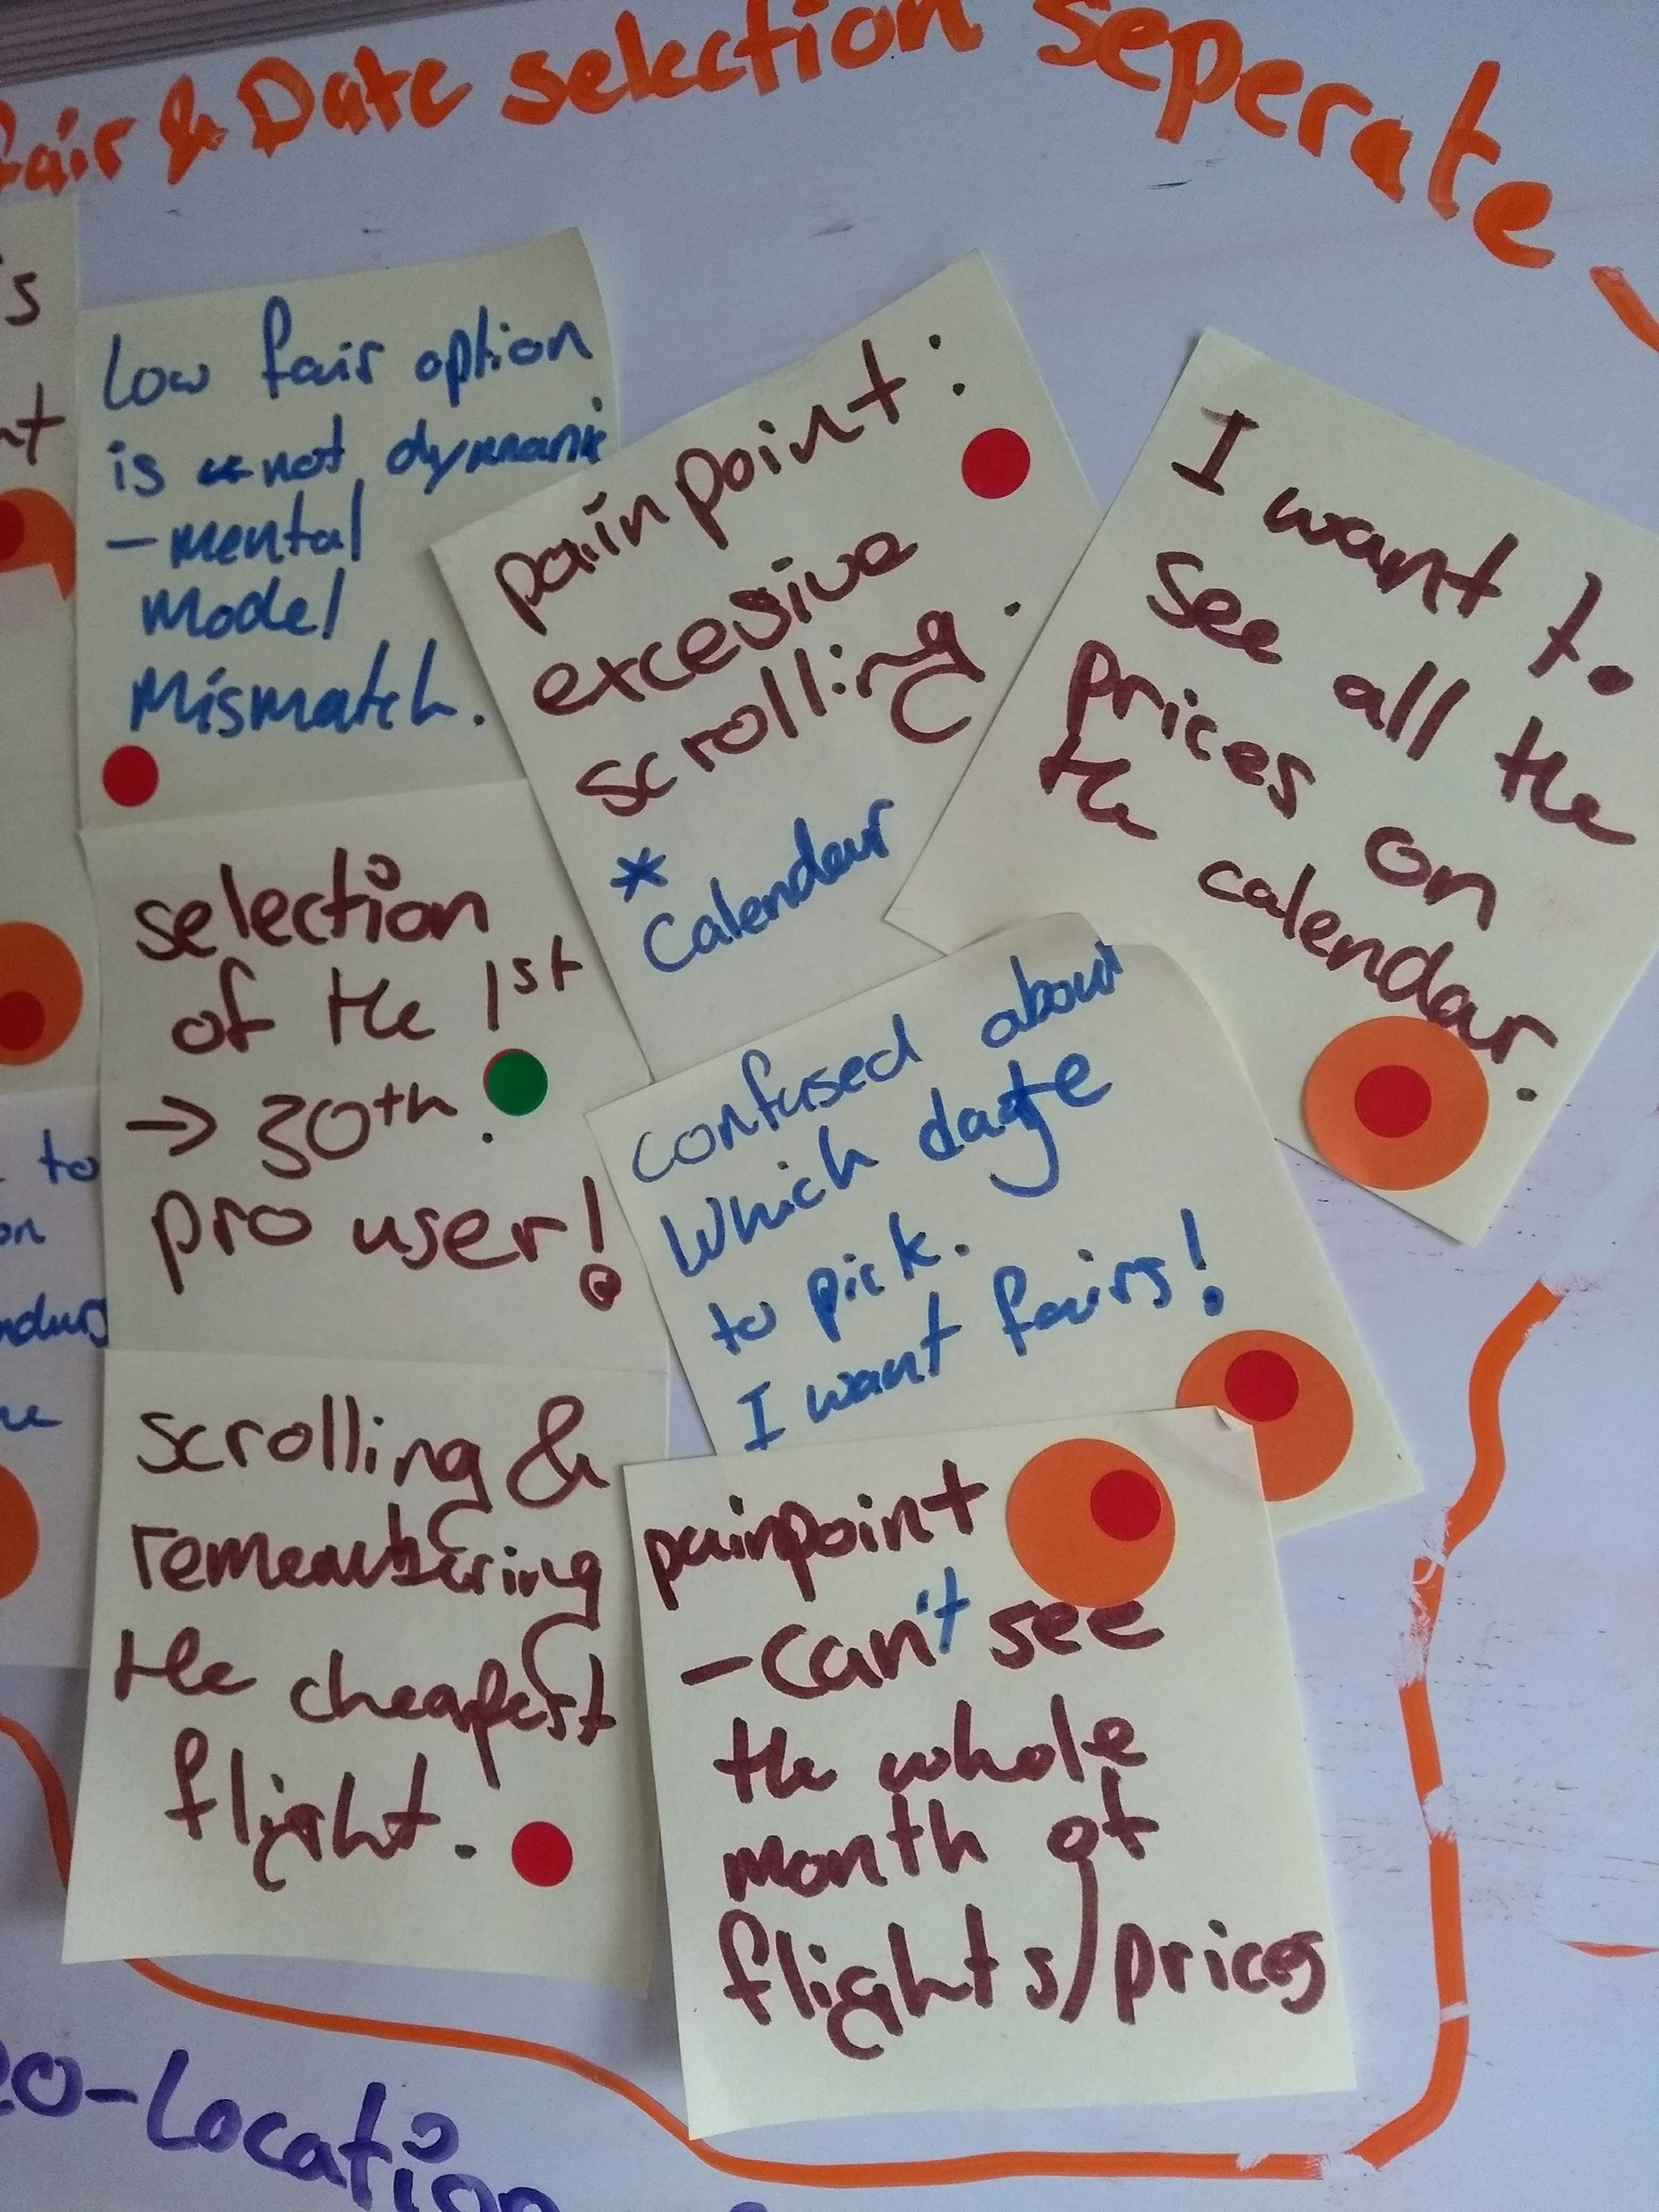 fair & Date selection seperate
low fair option
is not dynamic
- mental
model
Mismatch.
painpoint:
excesive
scrolling.
* Calendar
I want to
see all the
prices on
the calendar.
selection
of the 1st
→ 30th.
pro user!
confused about
which date
to pick.
I want fairs!
scrolling &
remembering
the cheapest
flight.
painpoint
- can't see
the whole
month of
flights/prices
to